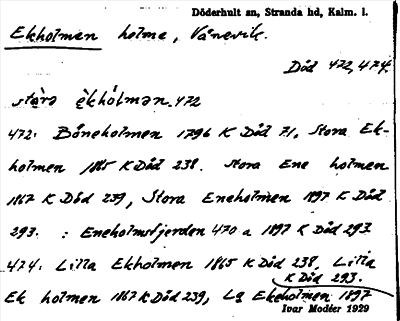 Döderhult sn, Stranda hd, Kalm. l.
Ekholmen holme, Vånevik.
Död 472, 474.
stòrə èkhólmən 472
472: Båneholmen 1796 K Död 71. Stora Ek-
holmen 1865 K Död 238. Stora Ene holmen
1867 K Död 239, Stora Eneholmen 1897 K Död
293. : Eneholmsfjerden 470 a 1897 K Död 293
474: Lilla Ekholmen 1865 K Död 238, Lilla
Ek holmen 1867 K Död 239, La Ekeholmen 1897
K Död 293.
Ivar Modéer 1929